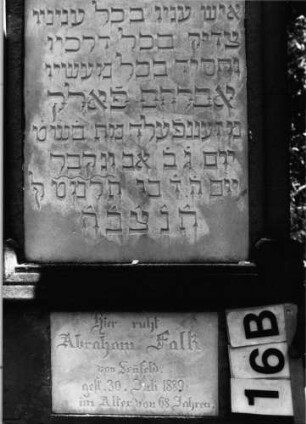 איש עניו בכל עניניו
צדיק בכל דרכיו
וחסיד בכל מעשיו
אברהם פאלק
מת בש״ט
יום ג׳ ב׳ אב ונקבר
יום ה׳ ד׳ בו
ת נ צ ב ה
Hier ruht
Abraham Falk
von
gest. 30. Juli 1889.
im Alter von 68 Jahren.
16B